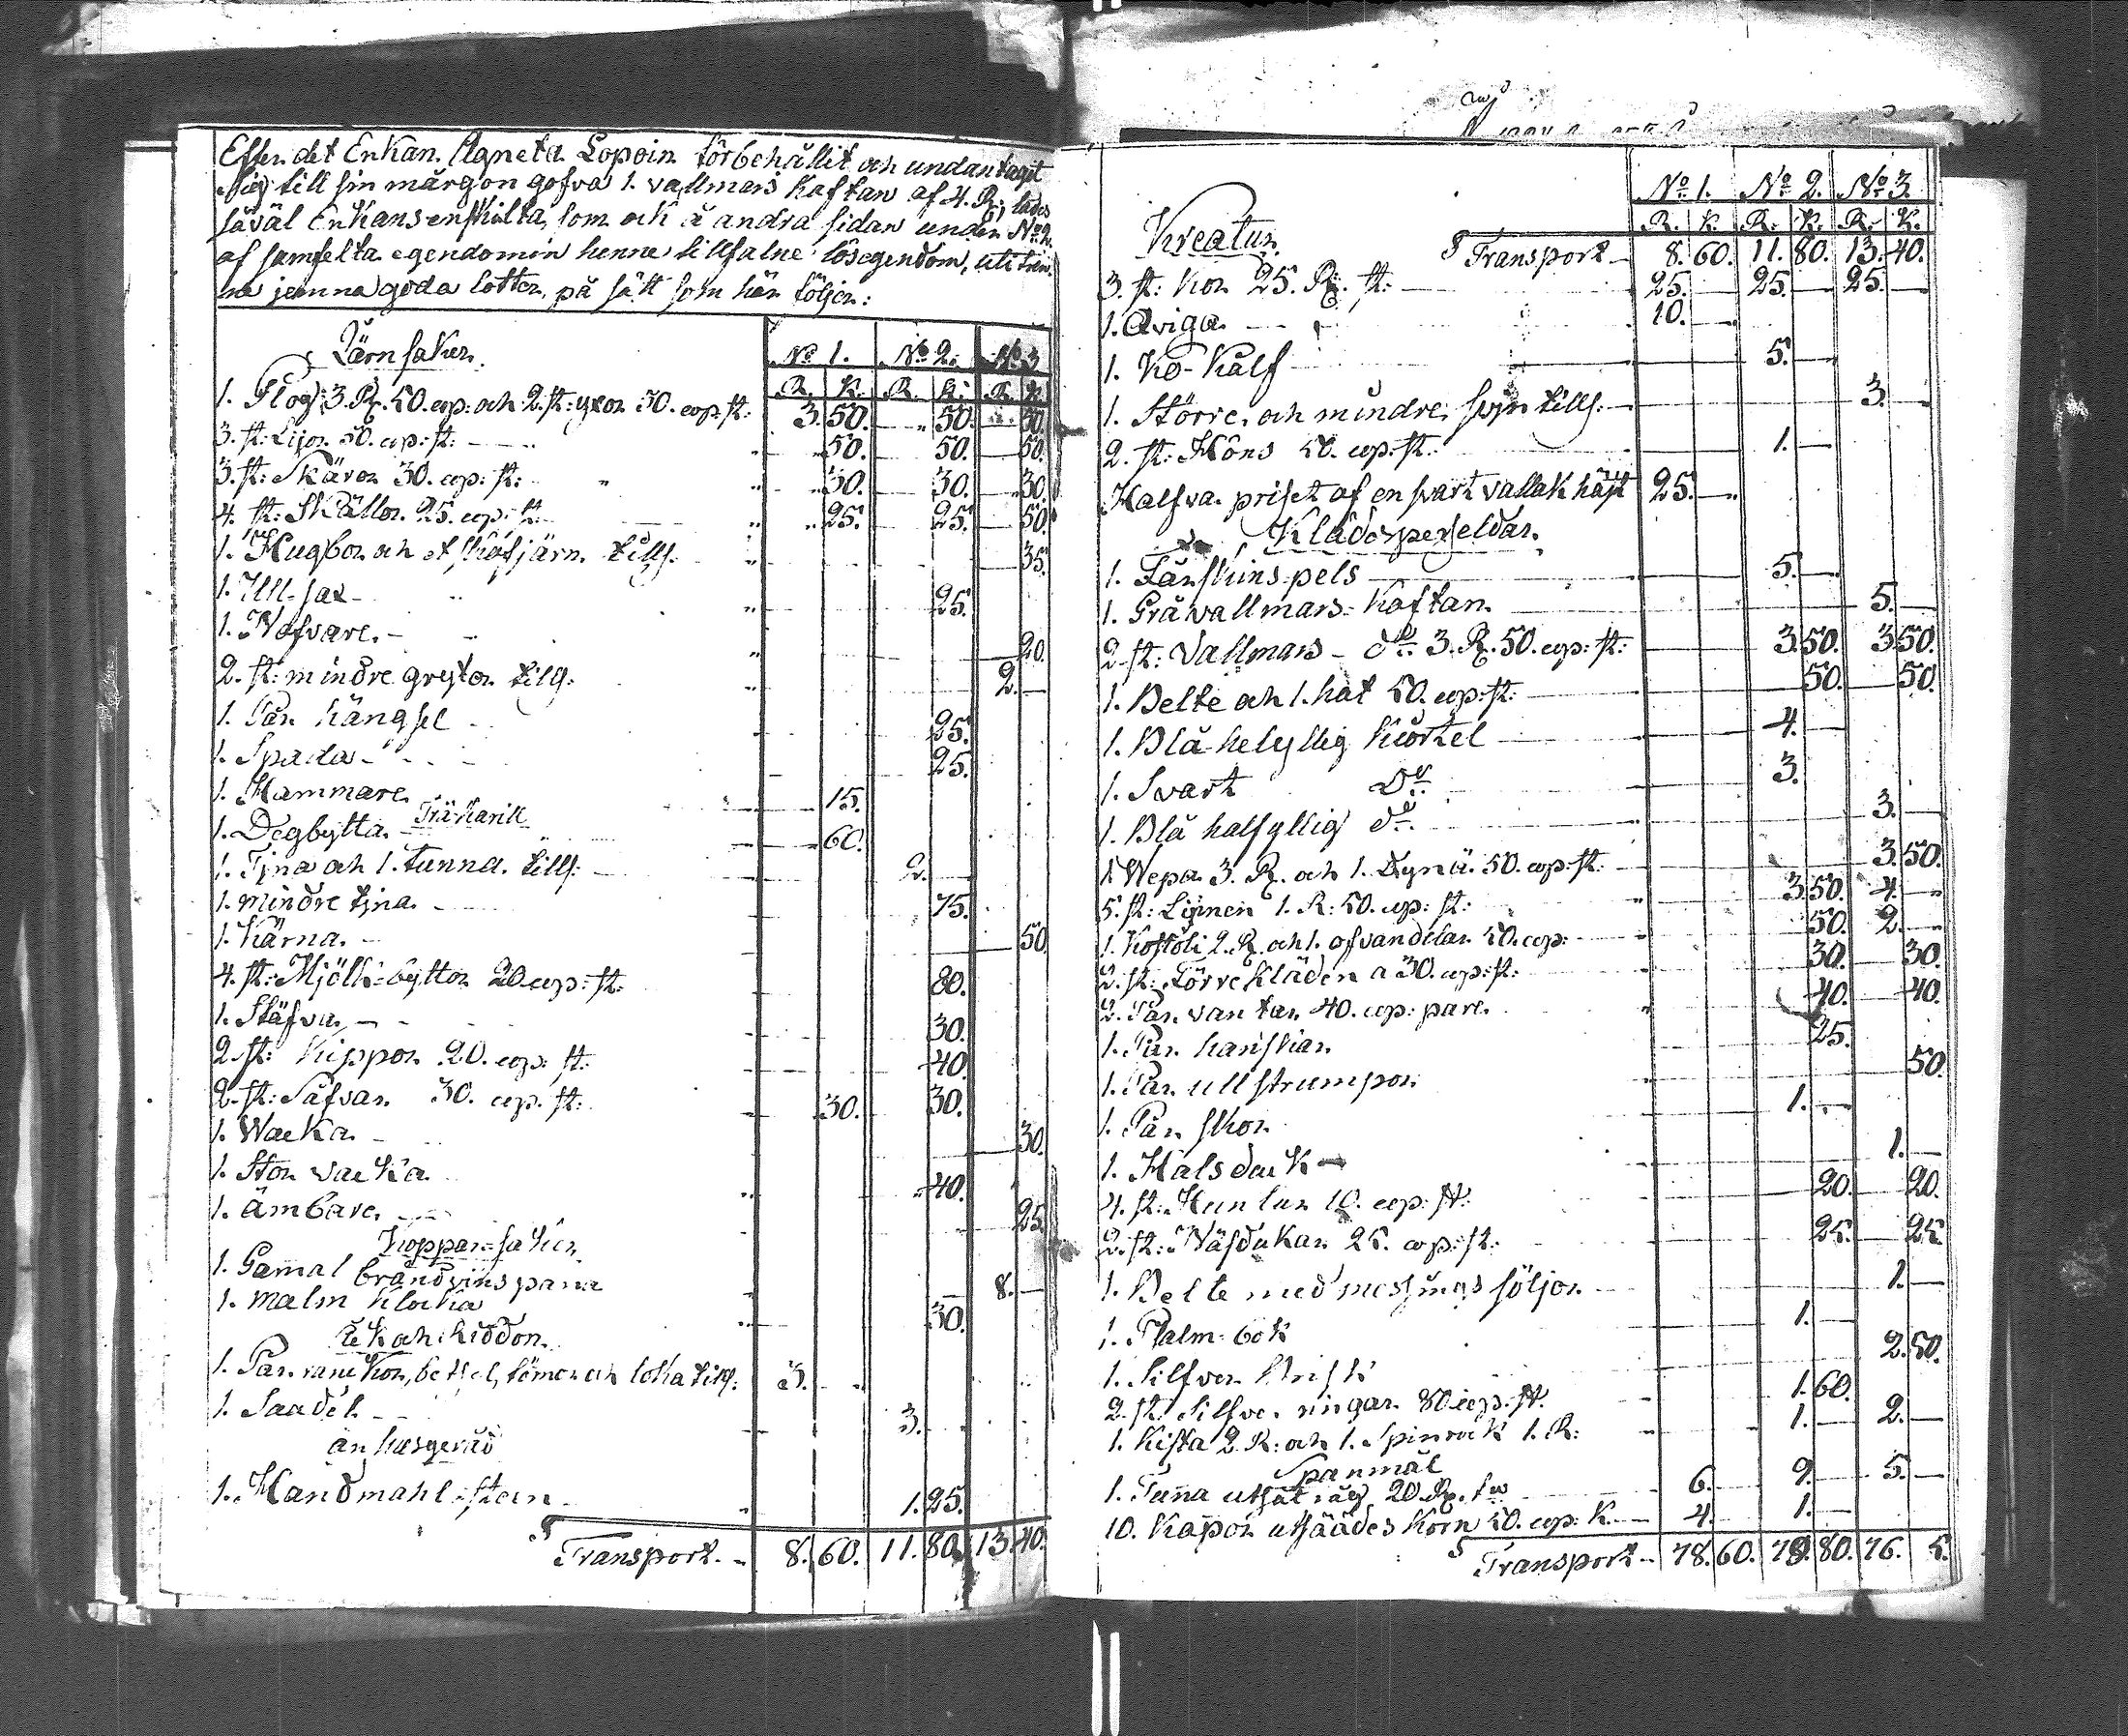 Efter det Enkan Agneta Lopoin förbehållit och undantagit
sig till sin märgon gofva 1. vallmars Kaftan af 4. R; lades
såväl Enkans enskilta, som ock å andra sidan under No 2.
af samfelta egendomin henne tillfalne lösegendom, uti tren-
ne jemna goda lotter, på sätt som här följer:
Järnsaker. No 1. No 2. No 3
R. K. R. K. R. K.
1. Plog 3. R. 50. cop: och 2. st: yxor 50. cop: st: 3. 50. 50. 50.
3. st: Lijor 50. cop: st: 50. 50. 50.
3. st: Skäror 30. cop: st: 30. 30. 30.
4. st: Skällor 25. cop: st: 25. 25. 50.
1. Hugbor och et skafjärn tills. 35.
1. Ull-sax 25.
1. Nafvare. 20.
2. st: mindre grytor tills: 2.
1. Par hängsel 25.
1. Spada 25.
1. Hammare 15.
Träkärill
1. Degbytta. 60.
1. Tjna och 1. tunna tills: 2.
1. mindre tjna 75.
1. Kärna. 50
4. st: Mjölk-byttor 20. cop: st: 80.
1. Stäfva 30.
2. st: Kippor 20. cop: st: 40.
2. st: Säfvar 30. cop. st: 30. 30.
1. Wacka 30.
1. Stor vacka 40.
1. ämbare. 25.
Koppar-saker
1. Gamal brändvinspana 8.
1. malm Klocka 30.
åk och riddon.
1. Par rankor, betsel, tömor och loka tills: 3.
1. Saadel 3.
än husgeråd
1. Handmahl-sten 1. 25.
Transport 8. 60. 11. 80. 13. 40.
No 1. No 2. No 3.
R. K. R. K. R. K.
Kreatur. Transport 8. 60. 11. 80. 13. 40.
3. st: Kor 25. R: st: 25. 25. 25.
1. Qviga 10.
1. Ko-Kalf 5.
1. Större och mindre svin tills: 3.
2. st: Höns 50. cop: st: 1.
Halfva priset af en svart vallak häst 25.
Klädespersedlar.
1. Fårskins pels 5.
1. Gråvallmars-Kaftan 5.
2. st: Vallmars do 3. R. 50. cop: st: 3. 50. 3. 50.
1. Belte och 1. hat 50. cop: st: 50. 50.
1. Blå helyllig Kiortel 4.
1. Svart Do 3.
1. Blå halfyllig do 3.
1. Wepa 3. R. och 1. Dynä 50. cop: st: 3. 50.
5. st: Linnen 1. R: 50. cop: st: 3. 50. 4.
1. 2. R. och 1. ofvandelar 50. cop: 50. 2.
2. st: Förrekläden a 30. cop: st: 30. 30.
2. Par vantar 40. cop: pare. 40. 40.
1. Par hanskar 25.
1. Par ullstrumpor 50.
1. Par skor 1.
1. Halsdauk 1.
4. st: 10. cop: st: 20. 20.
2. st: Näsdukar 25. cop: st: 25. 25.
1. Belte med mesings söljor 1.
1. Psalm-bok 1.
1. Silfver 2. 50.
2. st: Silfver ringar 80 cop. st. 1. 60.
1. Kista 2. R: och 1. Spinrock 1. R: 1. 2.
Spanmål
1. Tunna utsåt råg 20. R. 6. 9. 5.
10. Kappor utsäädes Korn 50. cop: K. 4. 1.
Transport 78. 60. 79. 80. 76. 5.